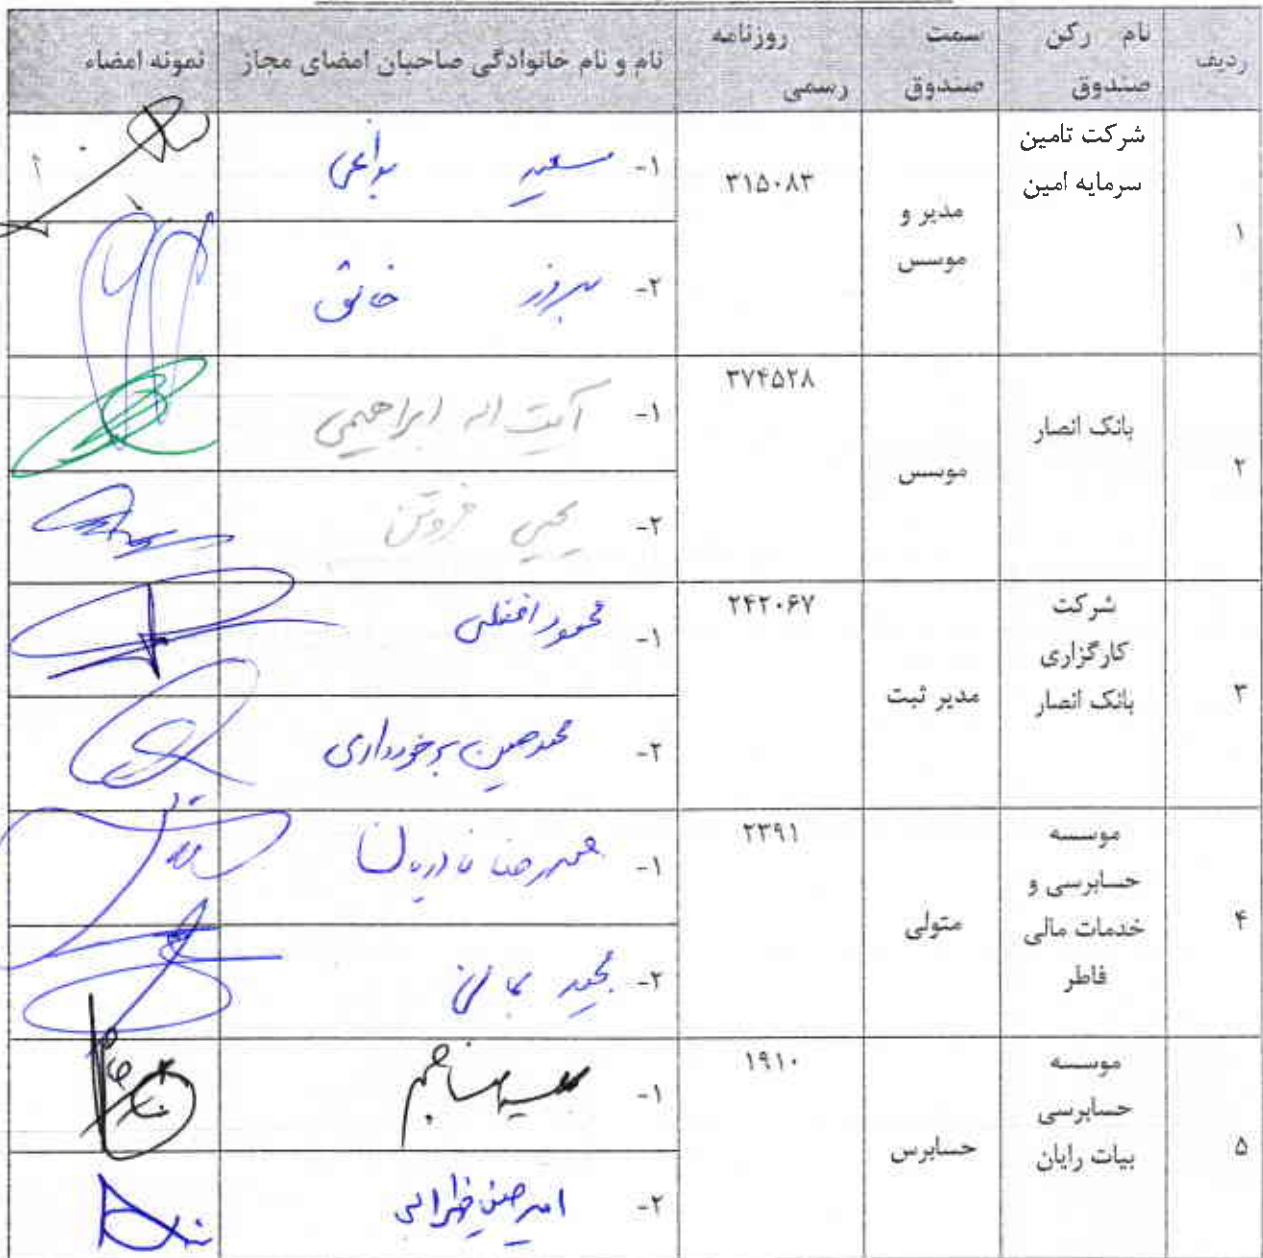 ردیف
نام رکن
صندوق
سمت
صندوق
روزنامه
رسمی
نام و نام خانوادگی صاحبان امضای مجاز
نمونه امضاء
۱
شرکت تامین
سرمایه امین
مدیر و
موسس
۳۱۵۰۸۳
۱- سعید
۲- بهروز
۲
بانک انصار
موسس
۳۷۴۵۲۸
۱- آیت اله ابراهیمی
۲- یحیی فروتن
۳
شرکت
کارگزاری
بانک انصار
مدیر ثبت
۲۴۲۰۶۷
۱- محمود افضلی
۲- محمدحسین برخورداری
۴
موسسه
حسابرسی و
خدمات مالی
فاطر
متولی
۲۳۹۱
۱- نادریان
۲- مجید
۵
موسسه
حسابرسی
بیات رایان
حسابرس
۱۹۱۰
۱-
۲- امیرحسین